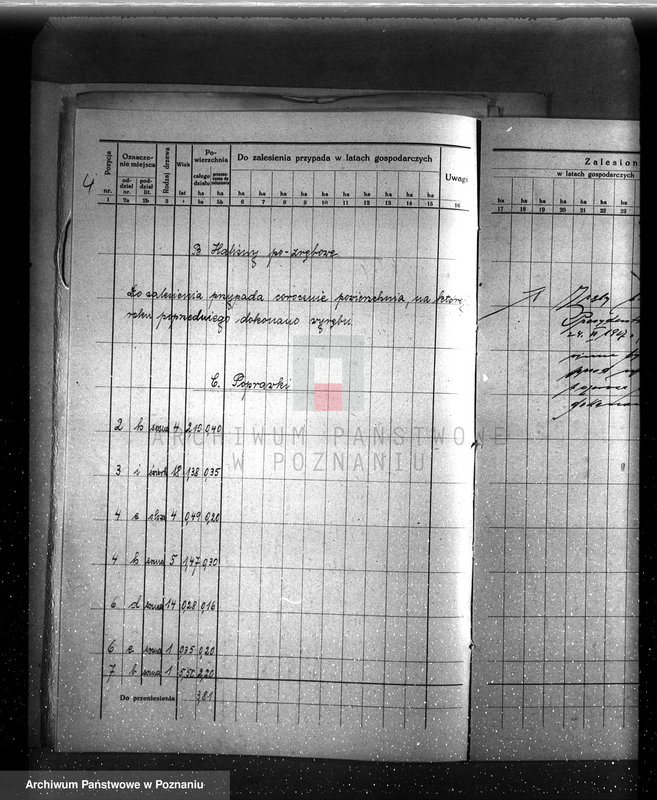 4
Pozycja
Oznaczenie miejsca
Rodzaj drzewa
Wiek
Powierzchnia
Do zalesienia przypada w latach gospodarczych
Uwagi
nr.
oddział nr.
pododdział lit.
lat
całego działu
ha ha ha ha ha ha ha ha ha ha ha ha
1 2a 2b 3 4 5a 5b 6 7 8 9 10 11 12 13 14 15 16
B Halizny po-zrębowe
Do zalesienia przypada corocznie powierzchnia, na której
roku poprzedniego dokonano wyrębu.
C. Poprawki
2 b sosna 4 2,15 0,40
3 i 18 1,38 0,35
4 c 4 0,49 0,20
4 h sosna 5 1,47 0,30
6 d sosna 14 0,28 0,16
6 c sosna 1 0,35 0,20
7 b sosna 1 5,50 2,20
Do przeniesienia 3,81
Zalesion
w latach gospodarczych
ha ha ha ha ha ha ha
17 18 19 20 21 22 23
24. II 1947.
ARCHIWUM PAŃSTWOWE
W POZNANIU
Archiwum Państwowe w Poznaniu